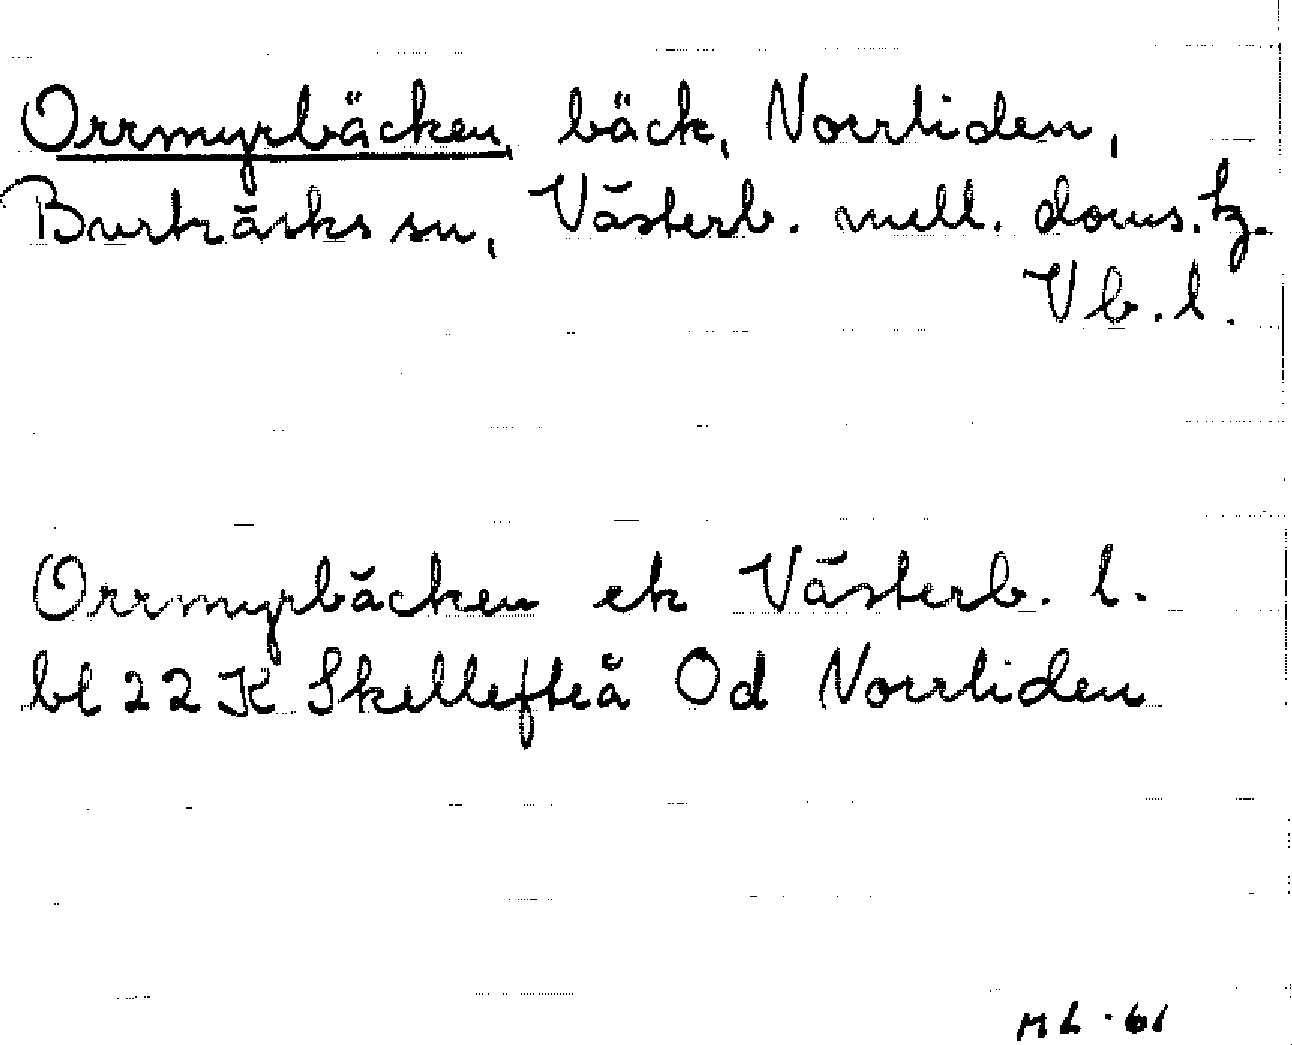 Orrmyrbäcken, bäck, Norrliden,
Burträsks sn, Västerb. mell. doms. tg.
Vb. l.
Orrmyrbäcken ek Västerb. l.
bl 22 K Skellefteå Od Norrliden
ML-61